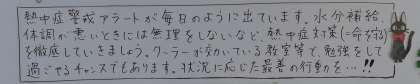 熱中症警戒アラートが毎日のように出ています。水分補給、
体調が悪いときには無理をしないなど、熱中症対策(=命を守る)
を徹底していきましょう。クーラーが効いている教室等で、勉強をして
過ごせるチャンスでもあります。状況に応じた最善の行動を…!!